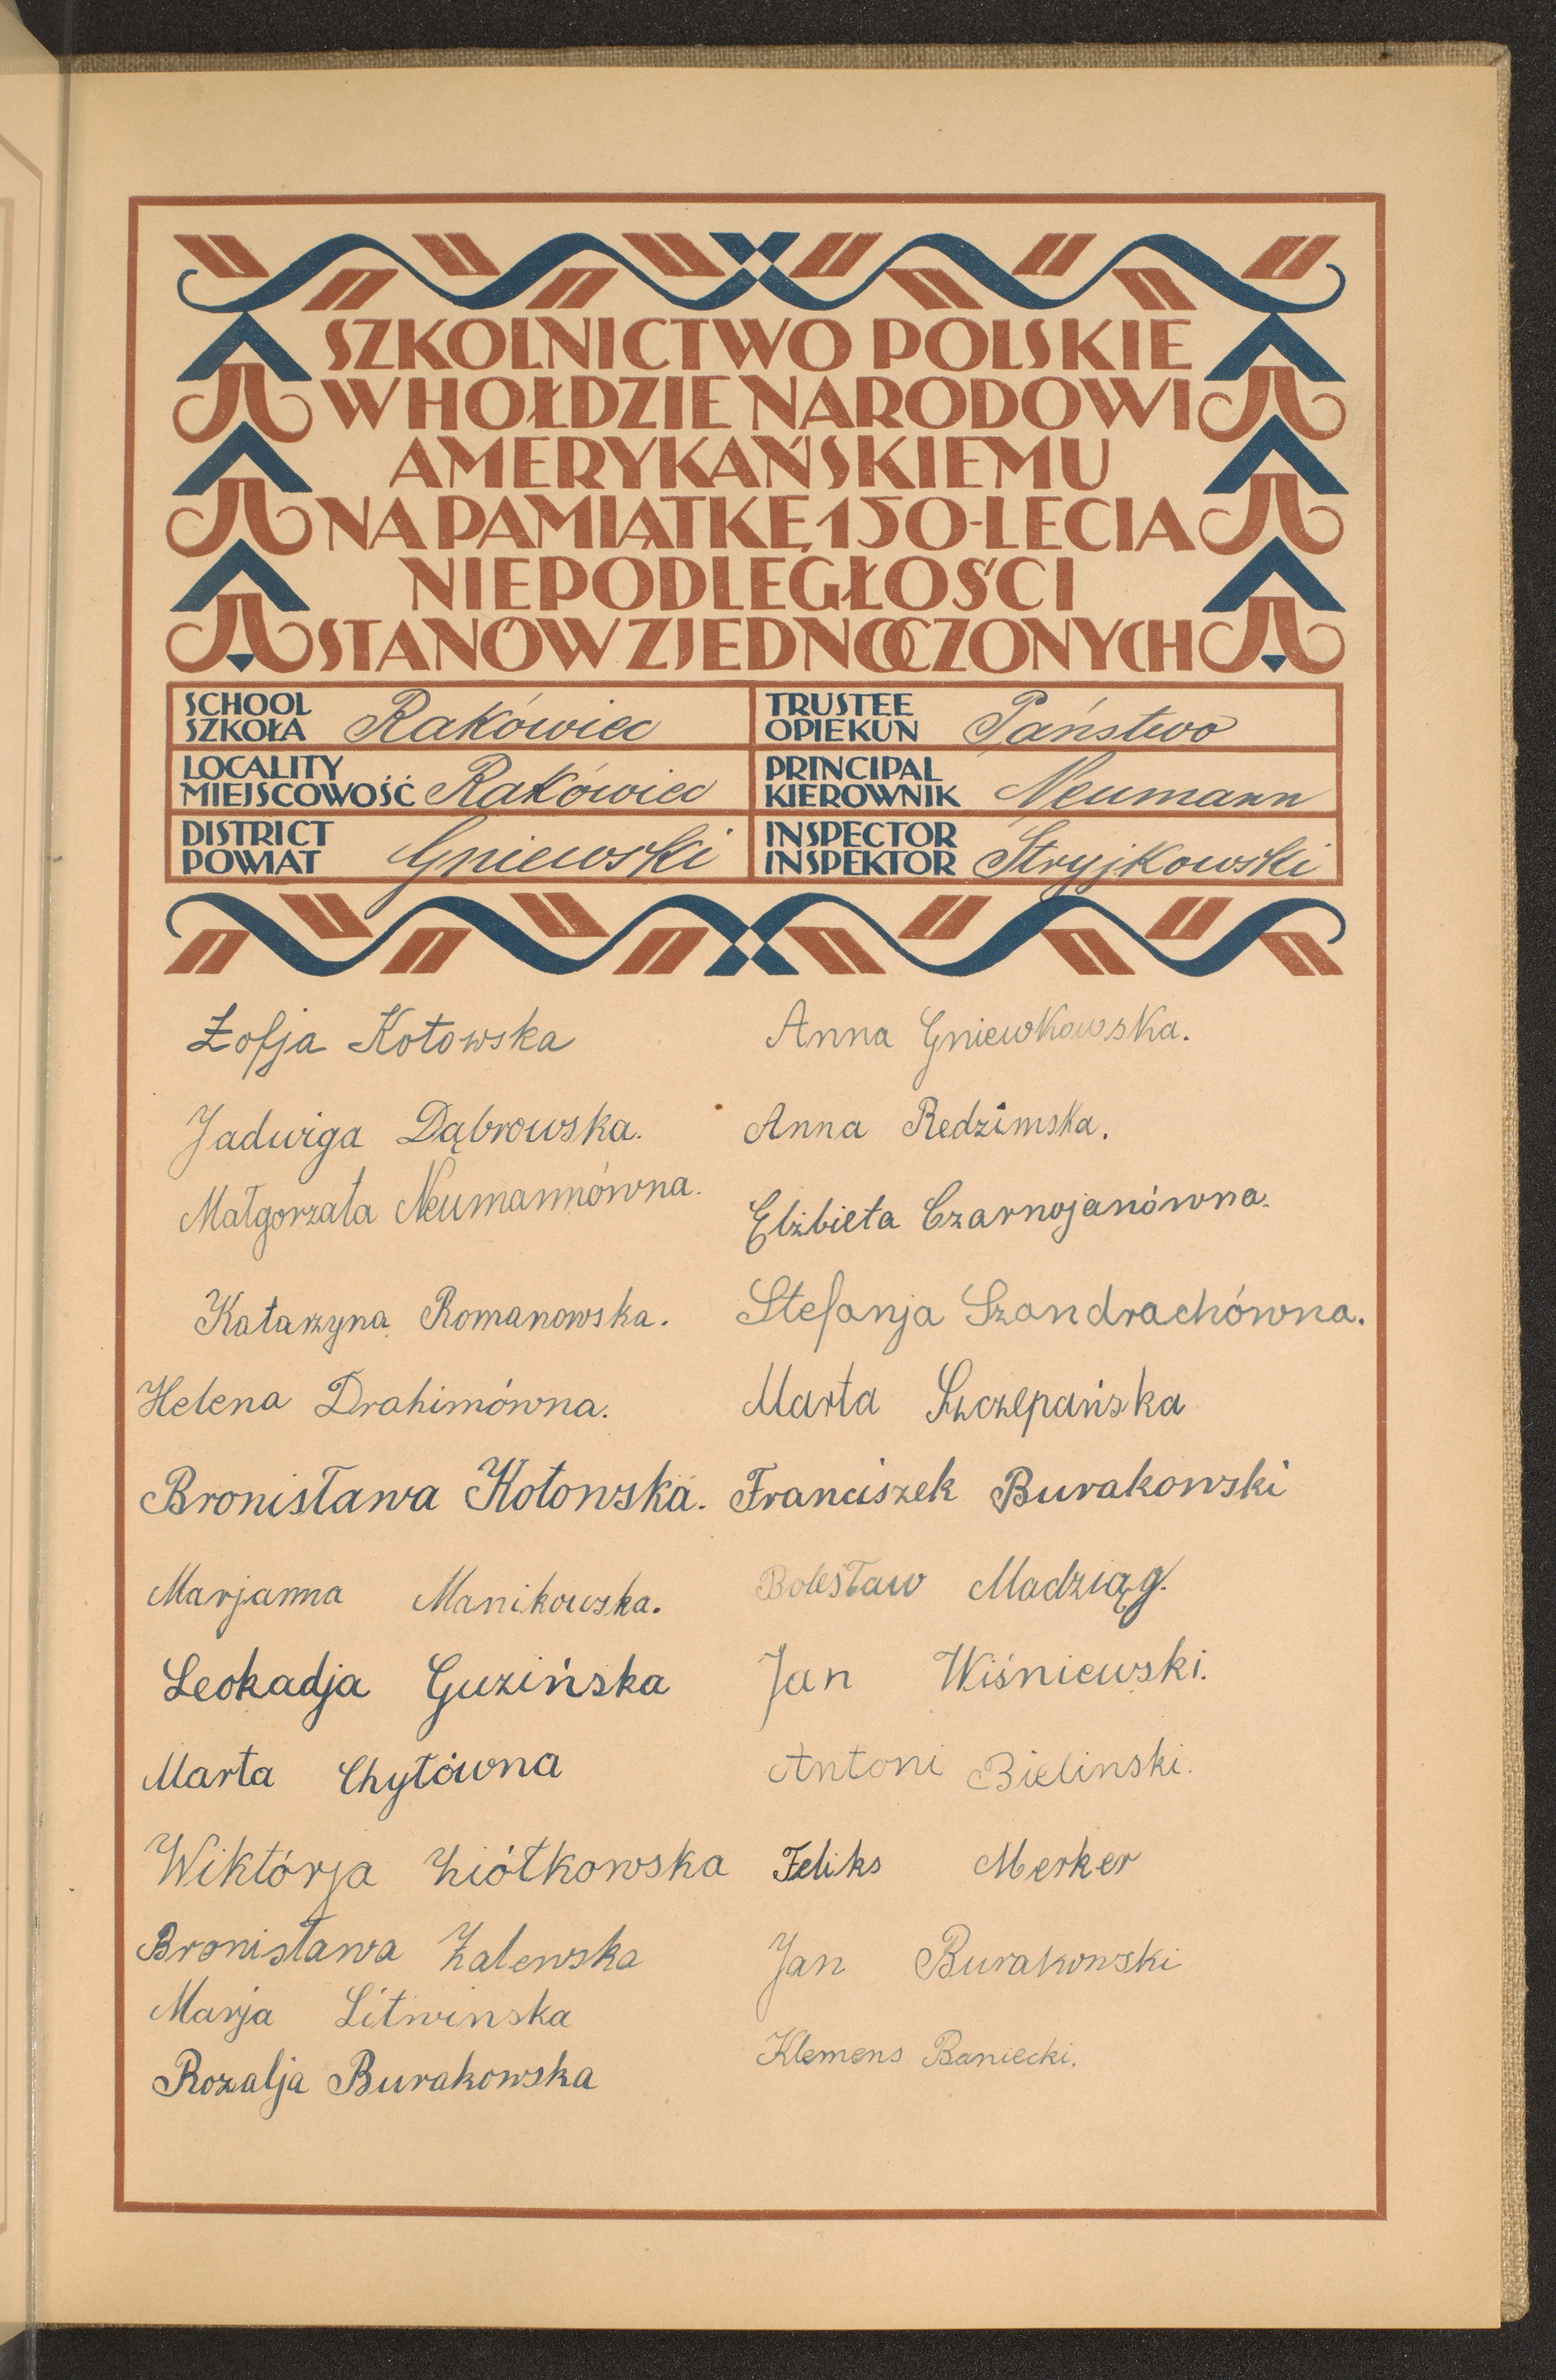 SZKOLNICTWO POLSKIE
W HOŁDZIE NARODOWI
AMERYKAŃSKIEMU
NA PAMIĄTKĘ 150-LECIA
NIEPODLEGŁOŚCI
STANÓW ZJEDNOCZONYCH
SCHOOL
SZKOŁA Rakówiec
TRUSTEE
OPIEKUN Państwo
LOCALITY
MIEJSCOWOŚĆ Rakówiec
PRINCIPAL
KIEROWNIK Neumann
DISTRICT
POWIAT Gniewski
INSPECTOR
INSPEKTOR Stryjkowski
Zofja Kotowska
Jadwiga Dąbrowska.
Małgorzata Neumannówna.
Katarzyna Romanowska.
Helena Drahimówna.
Bronisława Kotowska.
Marjanna Manikowska.
Leokadja Guzińska
Marta Chytówna
Wiktórja Ziółkowska
Bronisława Zalewska
Marja Litwinska
Rozalja Burakowska
Anna Gniewkowska.
Anna Redzimska.
Elżbieta Czarnojanówna.
Stefanja Szandrachówna.
Marta Szczepańska
Franciszek Burakowski
Bolesław Madziąg.
Jan Wiśniewski.
Antoni Bielinski.
Feliks Merker
Jan Burakowski
Klemens Baniecki.